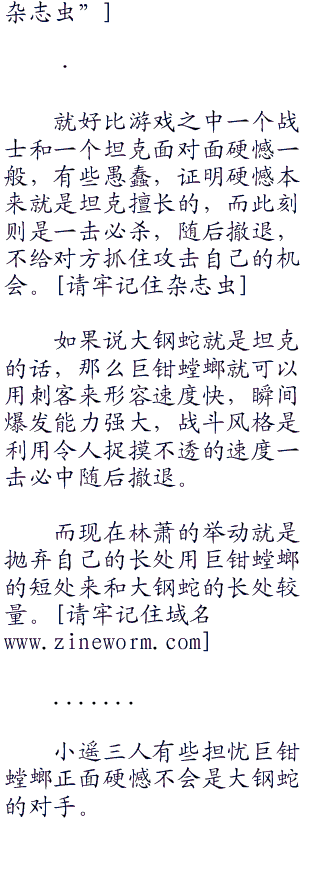 杂志虫”]
.
就好比游戏之中一个战
士和一个坦克面对面硬憾一
般，有些愚蠢，证明硬憾本
来就是坦克擅长的，而此刻
则是一击必杀，随后撤退，
不给对方抓住攻击自己的机
会。[请牢记住杂志虫]
如果说大钢蛇就是坦克
的话，那么巨钳螳螂就可以
用刺客来形容速度快，瞬间
爆发能力强大，战斗风格是
利用令人捉摸不透的速度一
击必中随后撤退。
而现在林萧的举动就是
抛弃自己的长处用巨钳螳螂
的短处来和大钢蛇的长处较
量。[请牢记住域名
www.zineworm.com]
.......
小遥三人有些担忧巨钳
螳螂正面硬憾不会是大钢蛇
的对手。